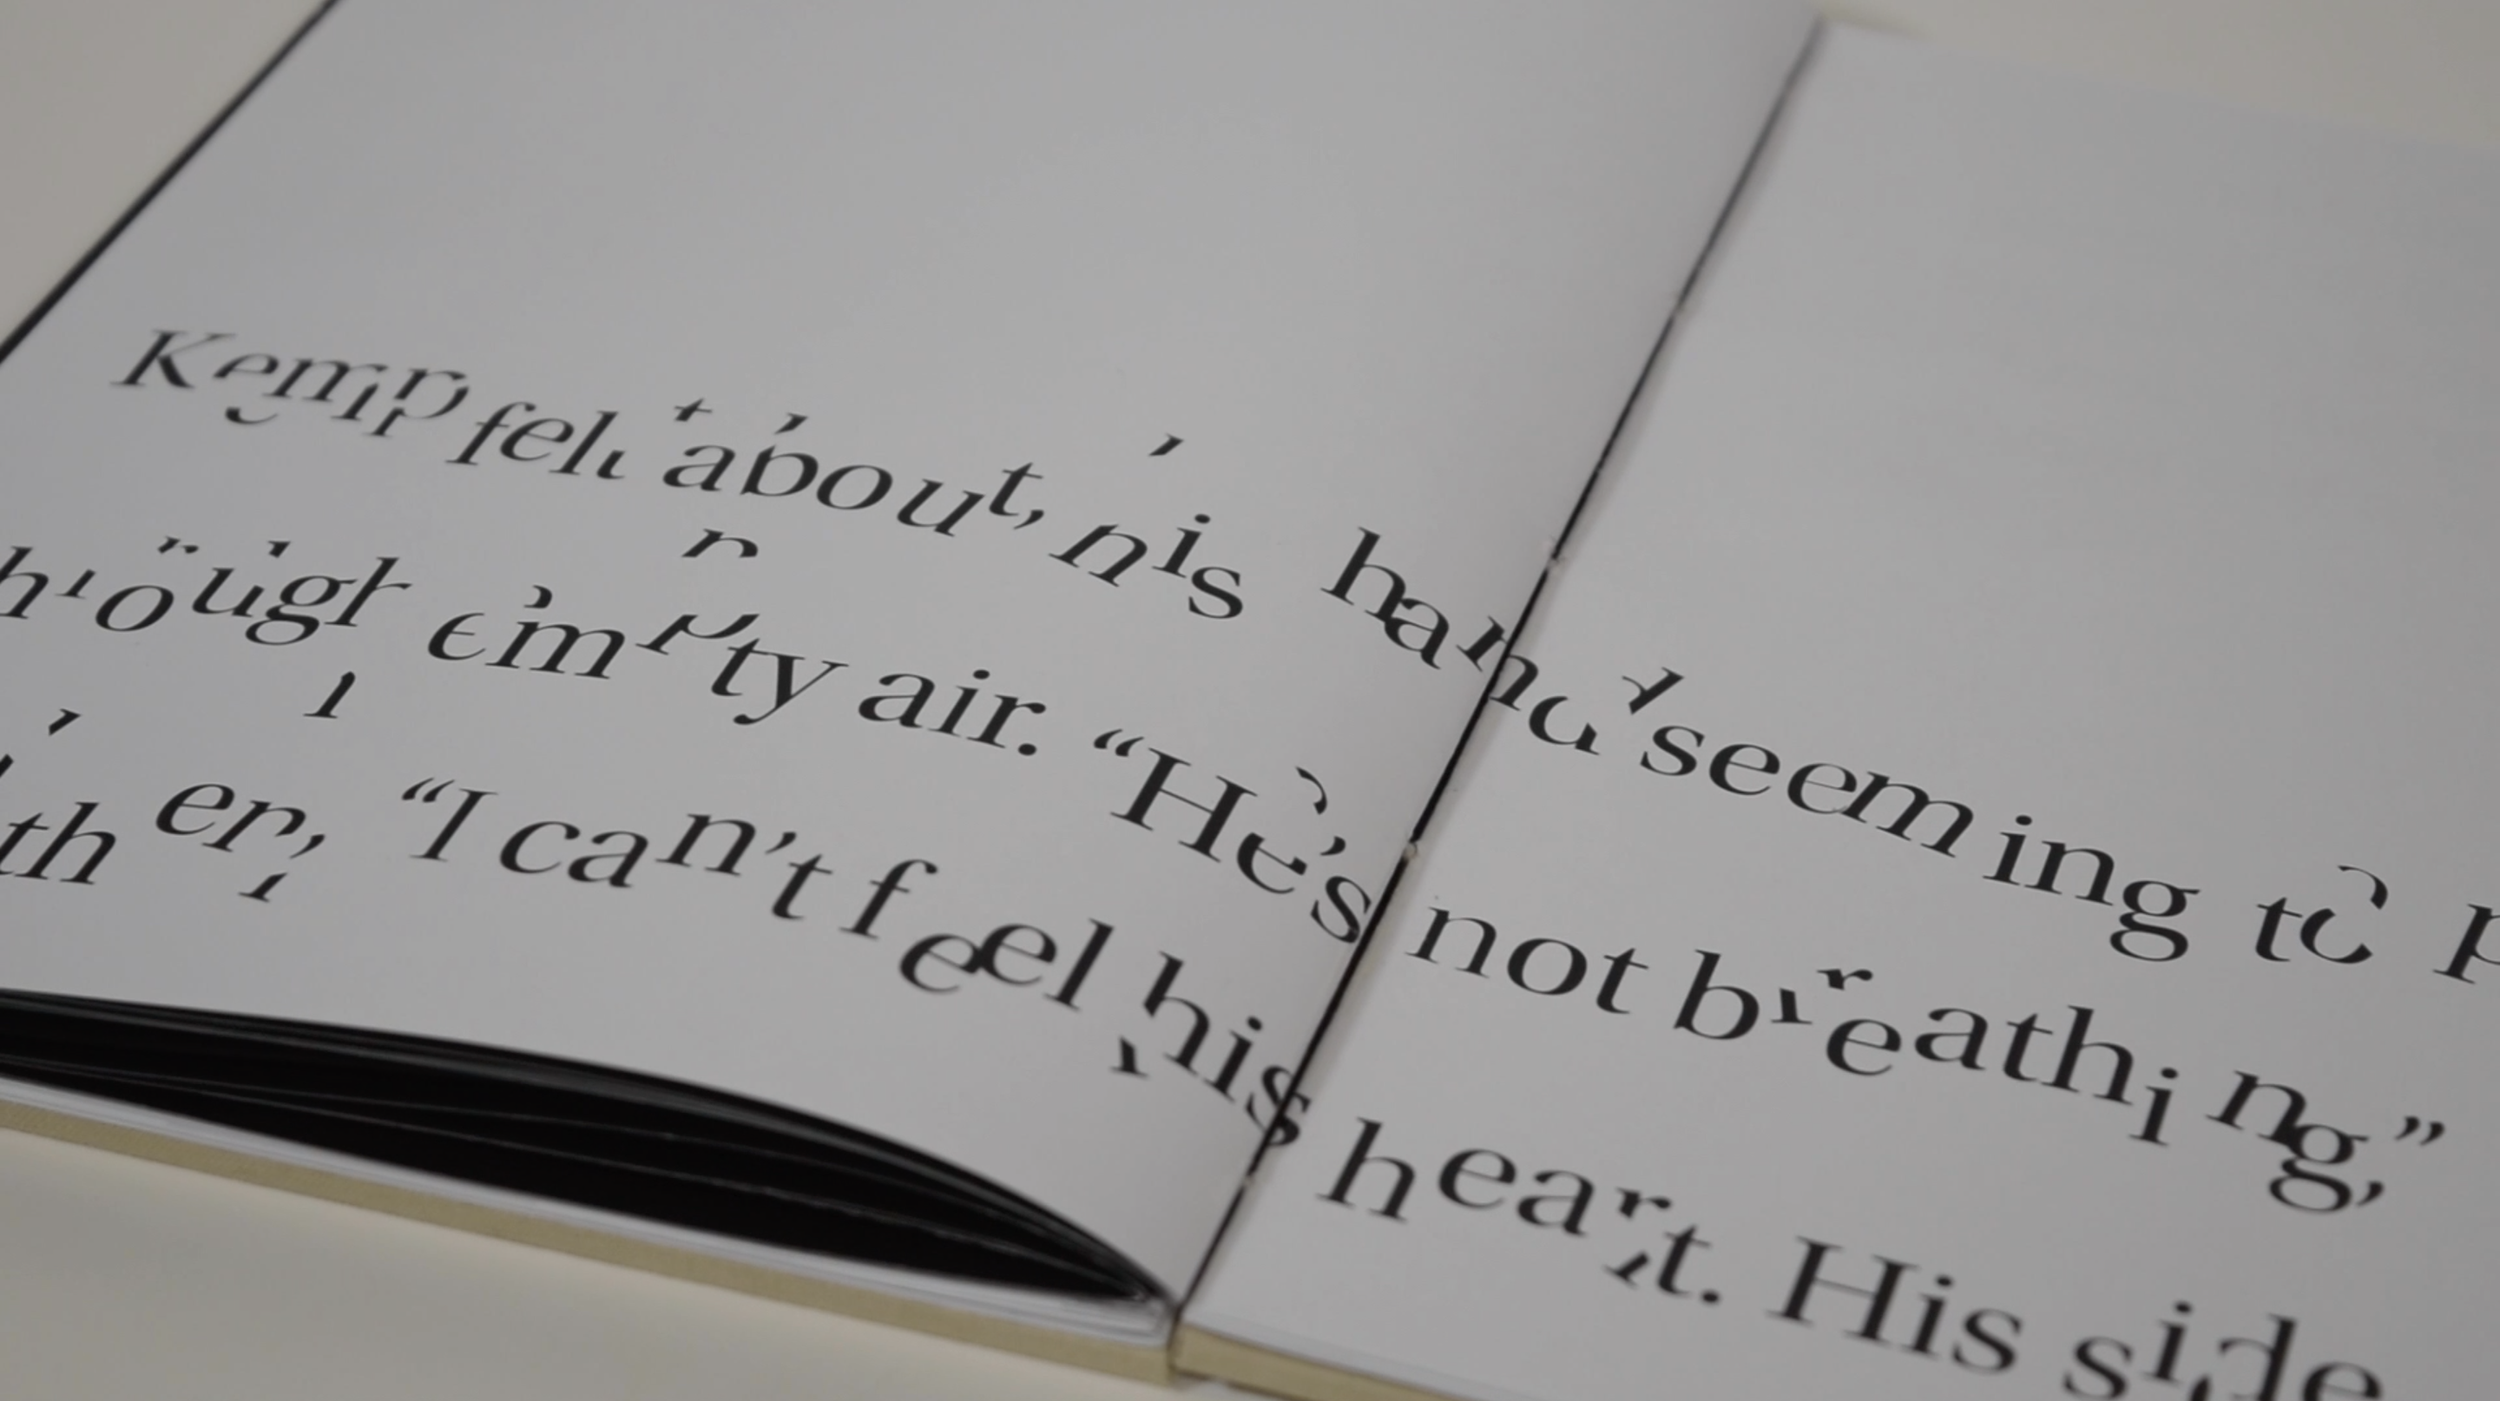 Kemp felt about, his hand seeming to p
hrough empty air. "He's not breathing,"
th er, "I can't feel his heart. His side